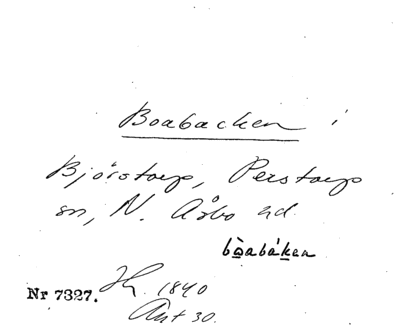 Boabacken i
Björstorp, Perstorp
sn, N. Åsbo hd
bo̲abák̲en
Nr 7327. 1840
30.